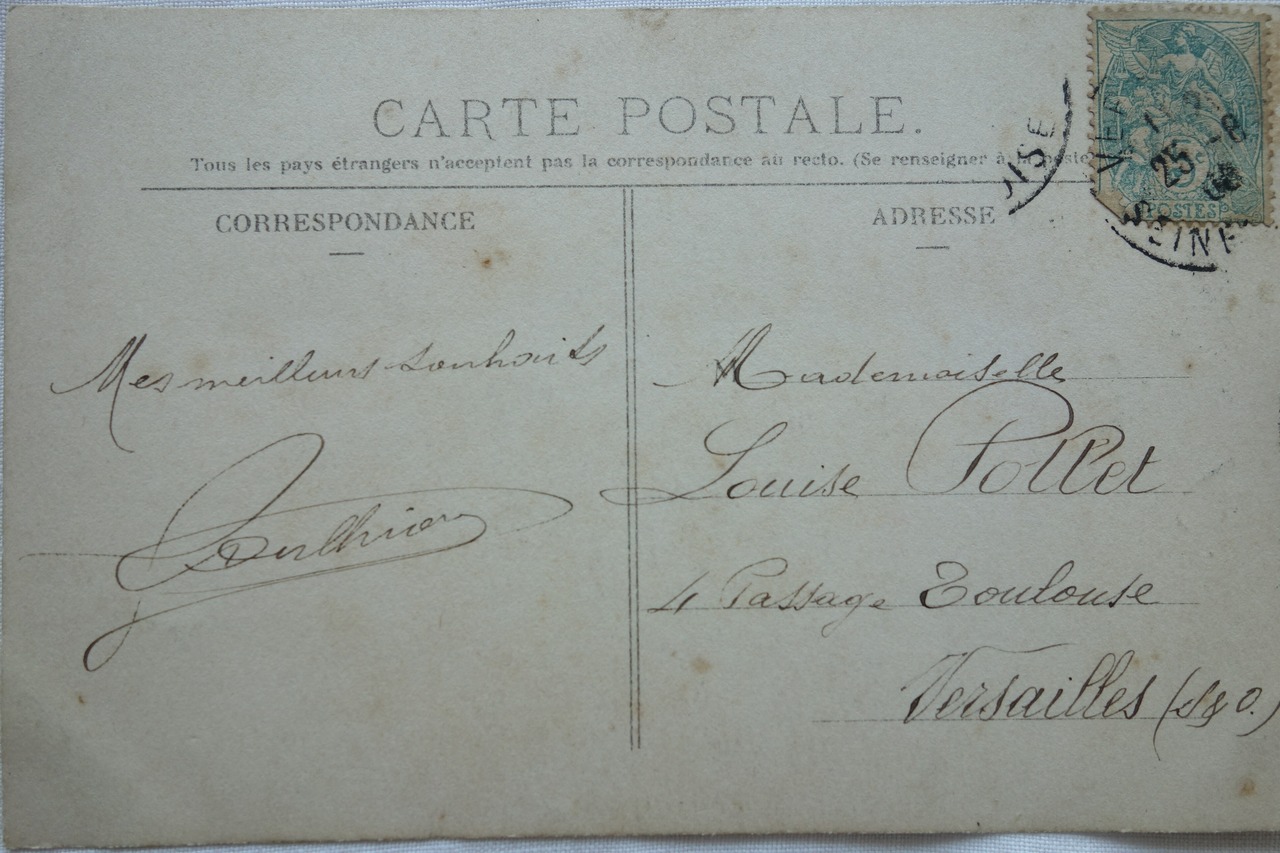 CARTE POSTALE.
Tous les pays étrangers n'acceptent pas la correspondance au recto. (Se renseigner à la poste
CORRESPONDANCE
ADRESSE
POSTES
25 -8
SEINE
OISE
Mes meilleurs souhaits
Mademoiselle
Louise Pollet
4 Passage Toulouse
Versailles (S & O.)